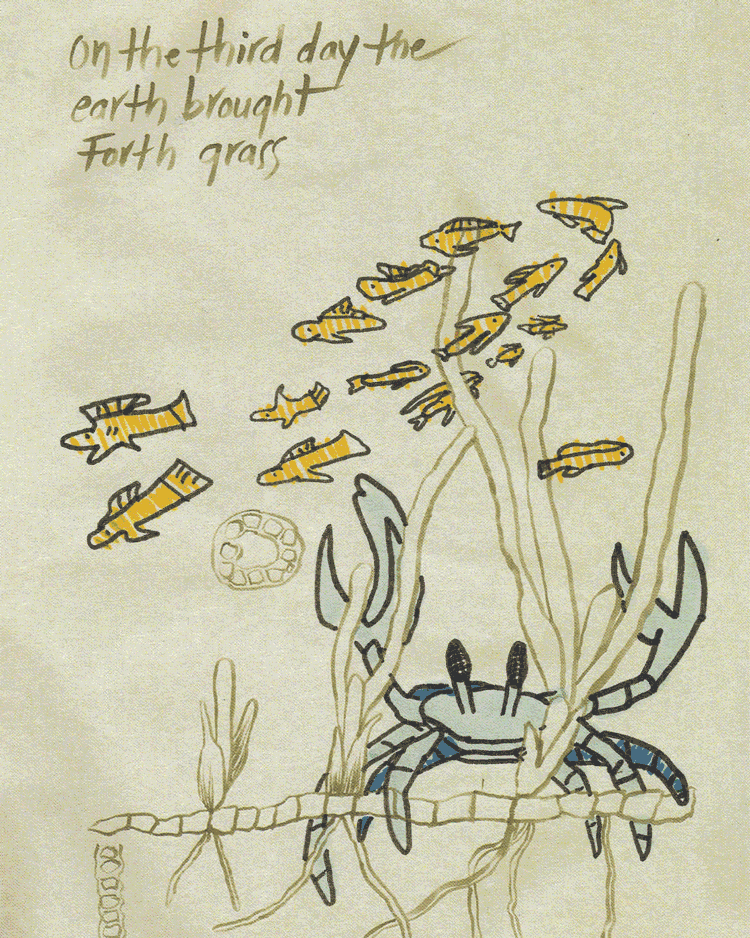 On the third day the
earth brought
Forth grass